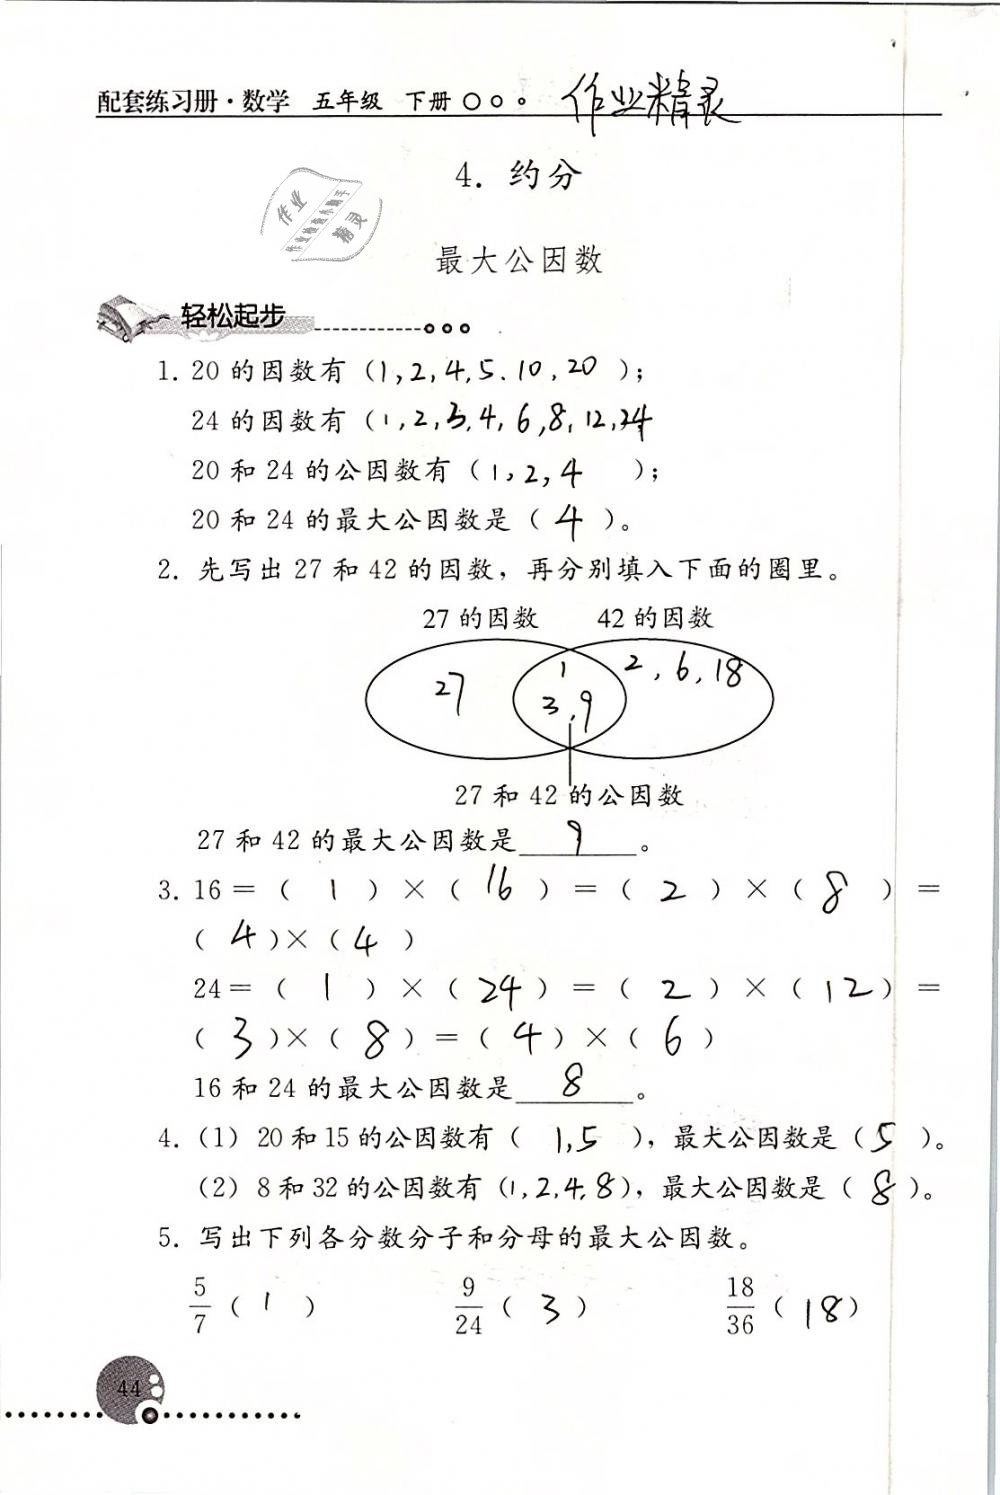 配套练习册·数学 五年级 下册 作业精灵
4. 约分
作业
作业检查小助手
精灵
最大公因数
轻松起步
1. 20 的因数有 (1,2,4,5、10,20 );
24 的因数有 (1,2,3,4,6,8,12,24
20 和 24 的公因数有 (1,2,4 );
20 和 24 的最大公因数是 ( 4 )。
2. 先写出 27 和 42 的因数，再分别填入下面的圈里。
27 的因数 42 的因数
27 1 3,9 2,6,18
27 和 42 的公因数
27 和 42 的最大公因数是 9 。
3. 16 = ( 1 ) × ( 16 ) = ( 2 ) × ( 8 ) =
( 4 )×( 4 )
24 = ( 1 ) × ( 24 ) = ( 2 ) × ( 12 ) =
( 3 )×( 8 ) = ( 4 ) × ( 6 )
16 和 24 的最大公因数是 8 。
4. (1) 20 和 15 的公因数有 ( 1,5 )，最大公因数是 ( 5 )。
(2) 8 和 32 的公因数有 (1,2,4,8)，最大公因数是 ( 8 )。
5. 写出下列各分数分子和分母的最大公因数。
5/7 ( 1 ) 9/24 ( 3 ) 18/36 ( 18 )
44